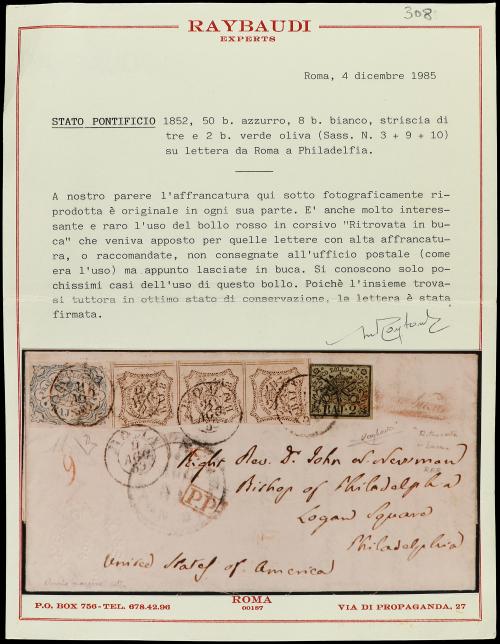 308
RAYBAUDI
EXPERTS
Roma, 4 dicembre 1985
STATO PONTIFICIO 1852, 50 b. azzurro, 8 b. bianco, striscia di
tre e 2 b. verde oliva (Sass. N. 3 + 9 + 10)
su lettera da Roma a Philadelfia.
A nostro parere l'affrancatura qui sotto fotograficamente ri-
prodotta è originale in ogni sua parte. E' anche molto interes-
sante e raro l'uso del bollo rosso in corsivo "Ritrovata in bu-
ca" che veniva apposto per quelle lettere con alta affrancatu-
ra, o raccomandate, non consegnate all'ufficio postale (come
era l'uso) ma appunto lasciate in buca. Si conoscono solo po-
chissimi casi dell'uso di questo bollo. Poichè l'insieme trova-
si tuttora in ottimo stato di conservazione, la lettera è stata
firmata.
BOLLO
BAJ. 2
ROMA
9
P.P.
Right Rev. Dr. John N. Newman
Bishop of Philadelphia
Logan Square
Philadelphia
United States of America
ROMA
P.O. BOX 756 - TEL. 678.42.96
00187
VIA DI PROPAGANDA, 27